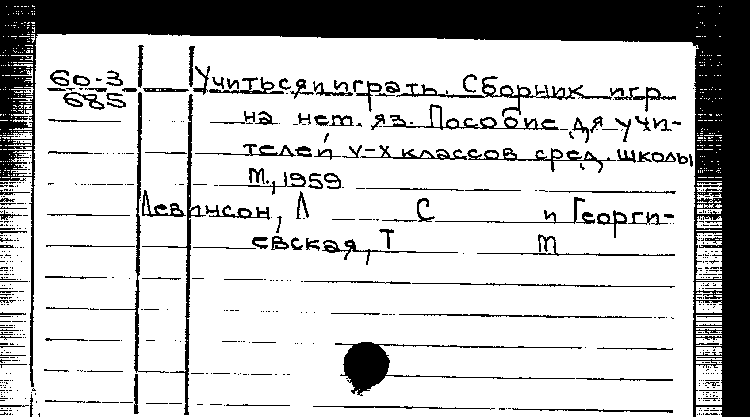 60-3
685
Учиться и играть. Сборник игр
на нет. яз. Пособие для учи-
телей V-X классов сред. школы
М., 1959
Левинсон, Л С и Георги-
евская, Т М